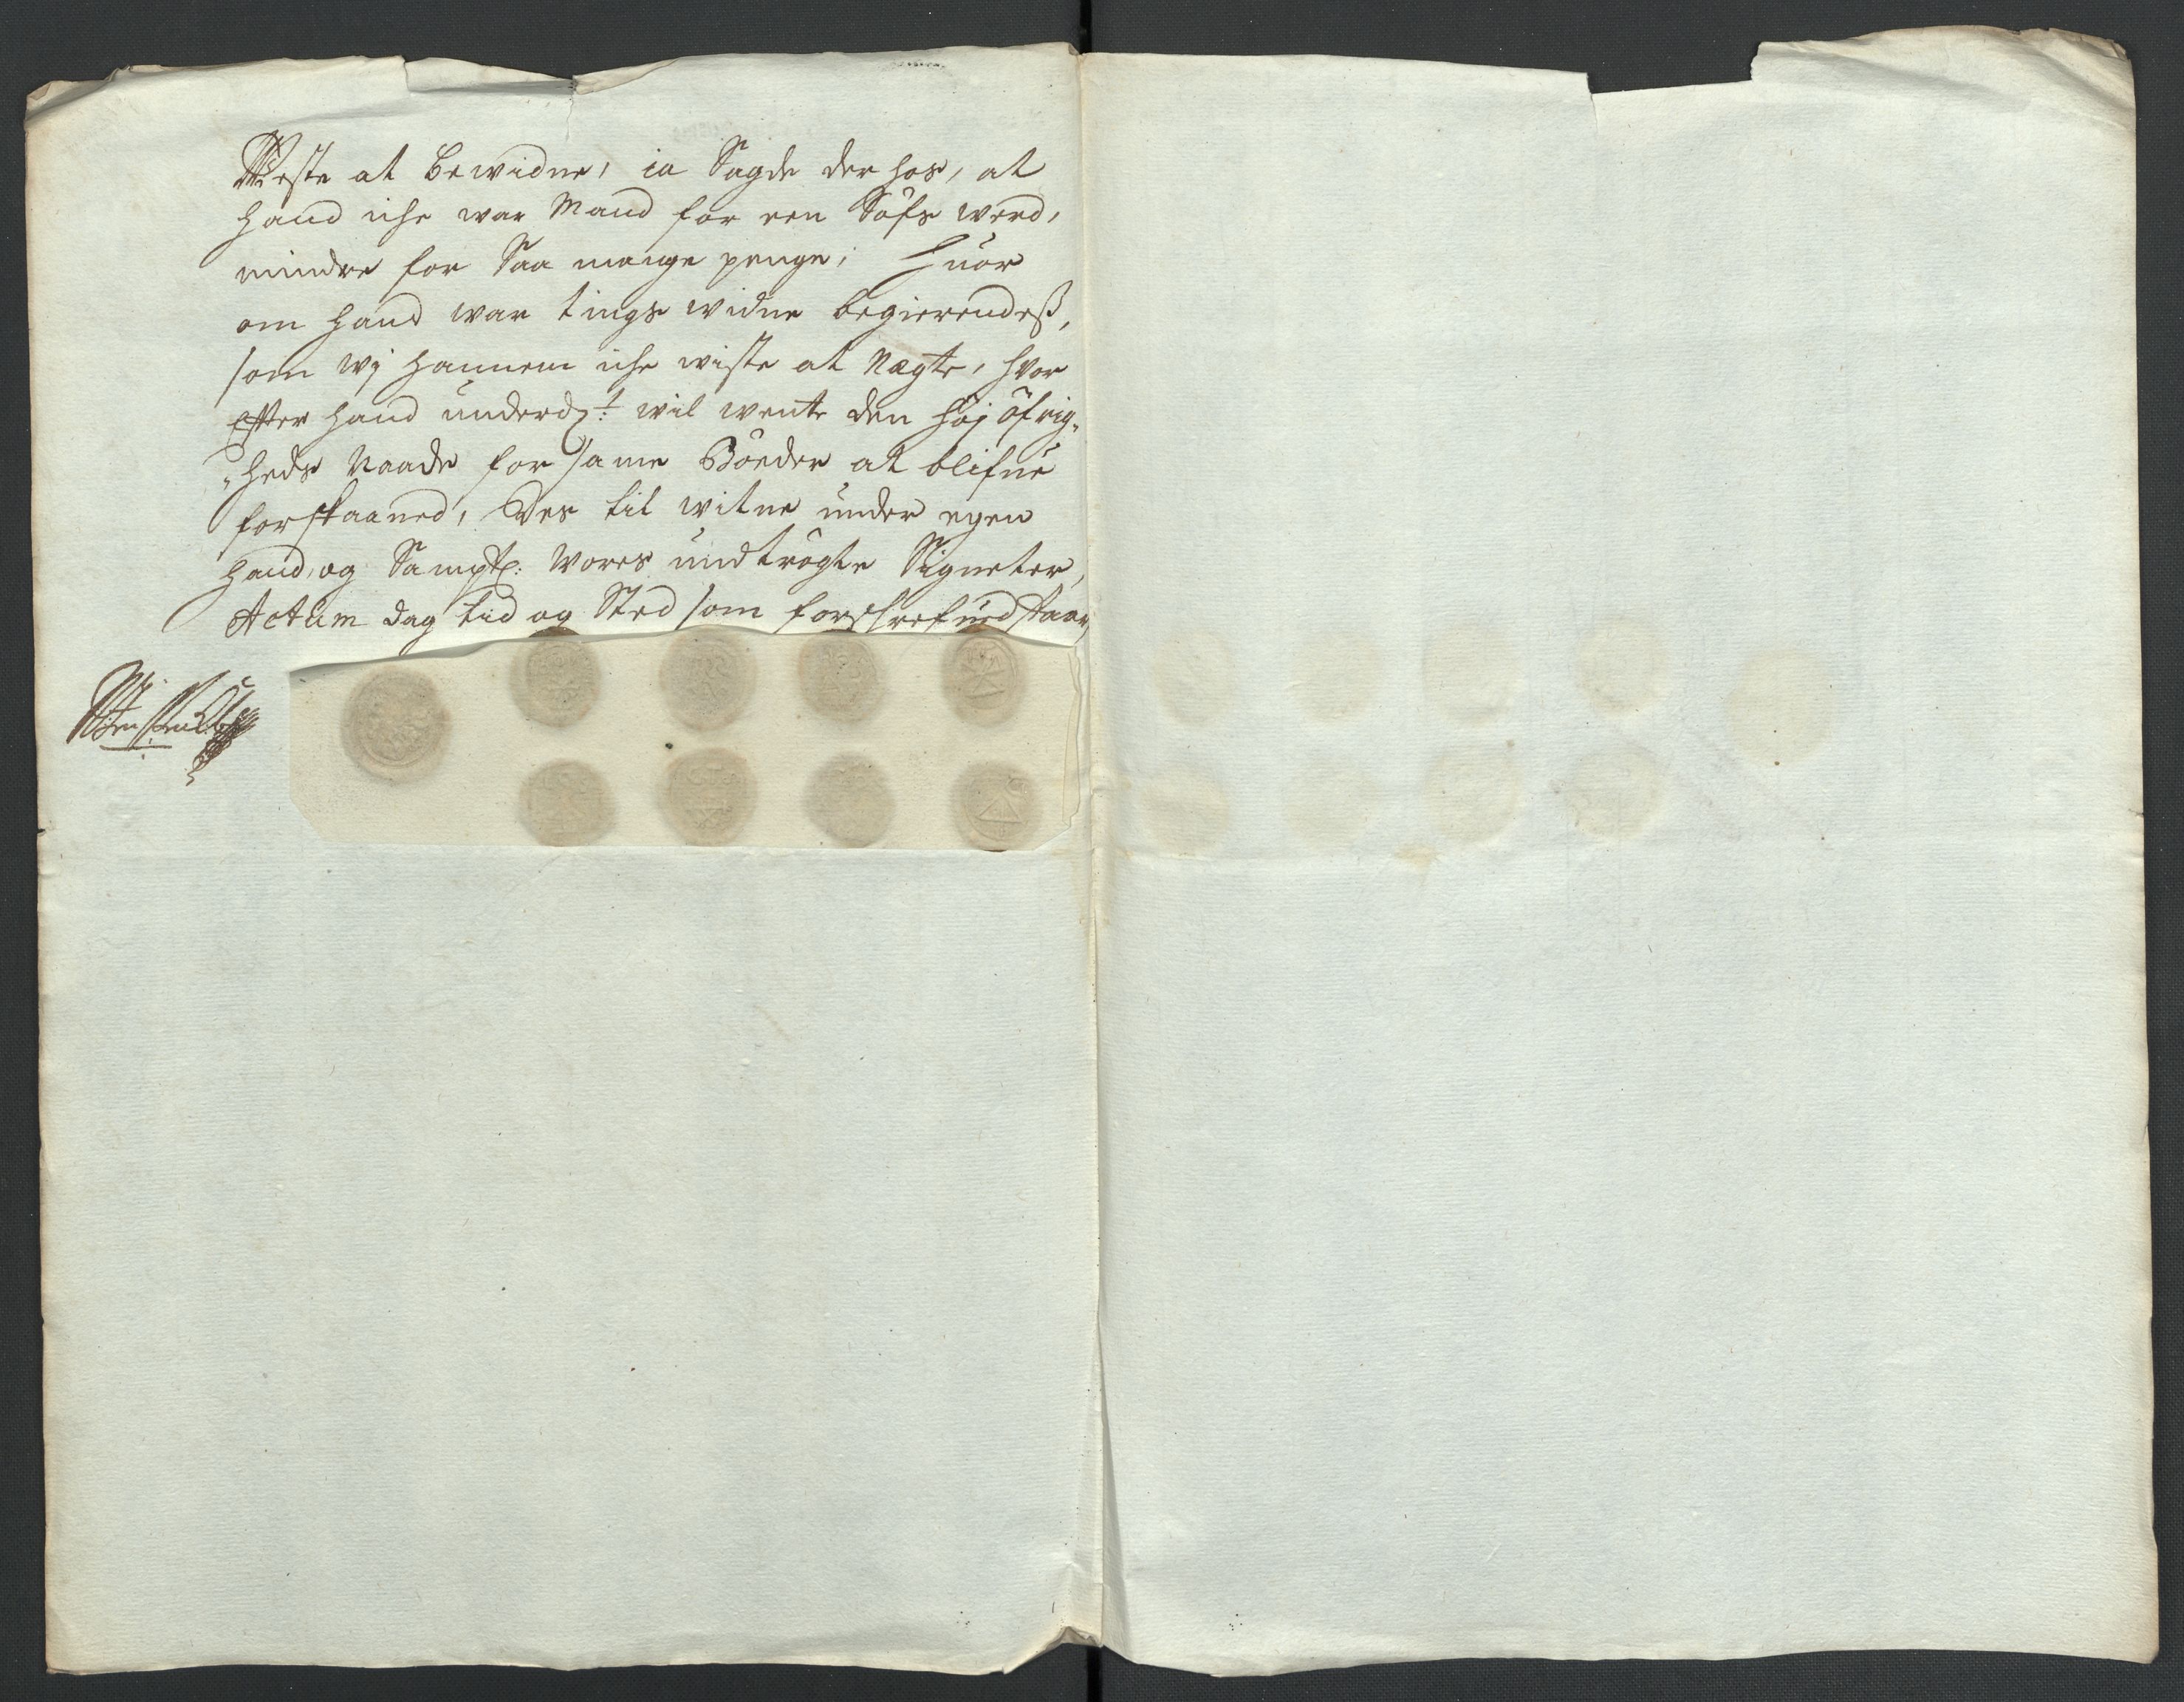 Weste at bewidne, ia Sagde der hos, at
hand iche war Mand for een Söfs werd,
mindre for Saa mange penge; Huor
om hand war tings widne begierendeß,
som wj hannem iche wiste at Nægte, hvor
efter hand underdt: wil wente den høj öfrig„
„heds Naade for same Böeder at blifue
forskaaned, Des til witne under egen
Hand, og Samptl: Wores undtrögte Signeter,
Actum dag tid og Sted som forschrefued staar,